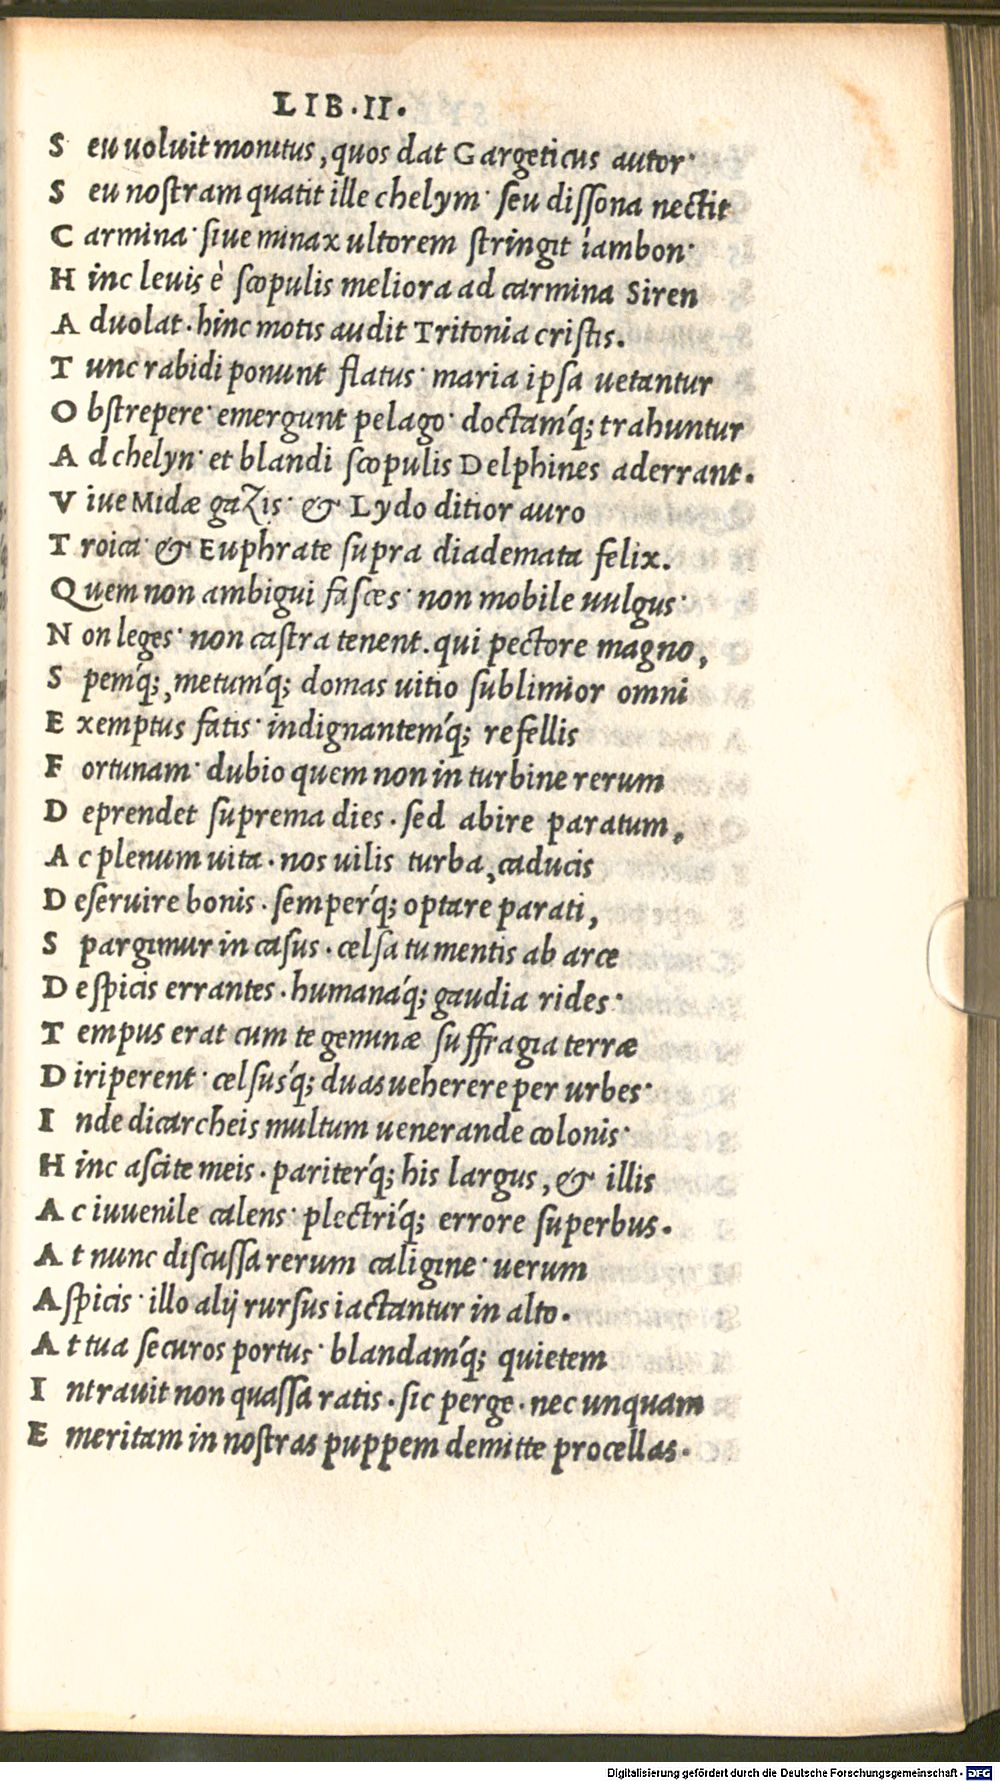 LIB·II·
S eu uoluit monitus, quos dat Gargeticus autor·
S eu nostram quatit ille chelym· seu dissona nectit
C armina· siue minax ultorem stringit iambon·
H inc leuis è scopulis meliora ad carmina Siren
A duolat·hinc motis audit Tritonia cristis.
T unc rabidi ponunt flatus· maria ipsa uetantur
O bstrepere· emergunt pelago· doctamq́; trahuntur
A d chelyn· et blandi scopulis Delphines aderrant.
V iue Midæ gazis· & Lydo ditior auro
T roica· & Euphrate supra diademata felix.
Q uem non ambigui fasces· non mobile uulgus·
N on leges· non castra tenent. qui pectore magno,
S pemq́;, metumq́; domas uitio sublimior omni
E xemptus fatis· indignantemq́; refellis
F ortunam· dubio quem non in turbine rerum
D eprendet suprema dies·sed abire paratum,
A c plenum uita·nos uilis turba, caducis
D eseruire bonis·semperq́; optare parati,
S pargimur in casus·celsa tu mentis ab arce
D espicis errantes·humanaq́; gaudia rides·
T empus erat cum te geminæ suffragia terræ
D iriperent· celsusq́; duas ueherere per urbes·
I nde dicarcheis multum uenerande colonis·
H inc ascite meis·pariterq́; his largus, & illis
A c iuuenile calens· plectriq́; errore superbus.
A t nunc discussa rerum caligine· uerum
A spicis· illo alij rursus iactantur in alto·
A t tua securos portus· blandamq́; quietem
I ntrauit non quassa ratis·sic perge·nec unquam
E meritam in nostras puppem demitte procellas·
Digitalisierung gefördert durch die Deutsche Forschungsgemeinschaft - DFG